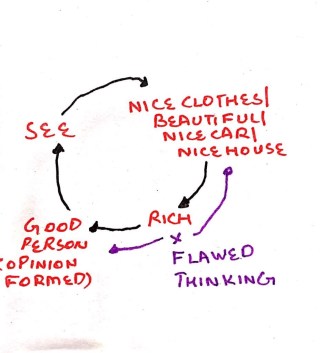 SEE
NICE CLOTHES/
BEAUTIFUL/
NICE CAR/
NICE HOUSE
RICH
GOOD
PERSON
(OPINION
FORMED)
x
FLAWED
THINKING